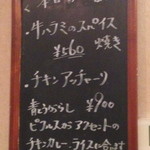 ・牛ハラミのスパイス
¥560 焼き
・チキンアッチャーリ
青とうがらし ¥900
ピクルスがアクセントの
チキンカレー。ライスに合います